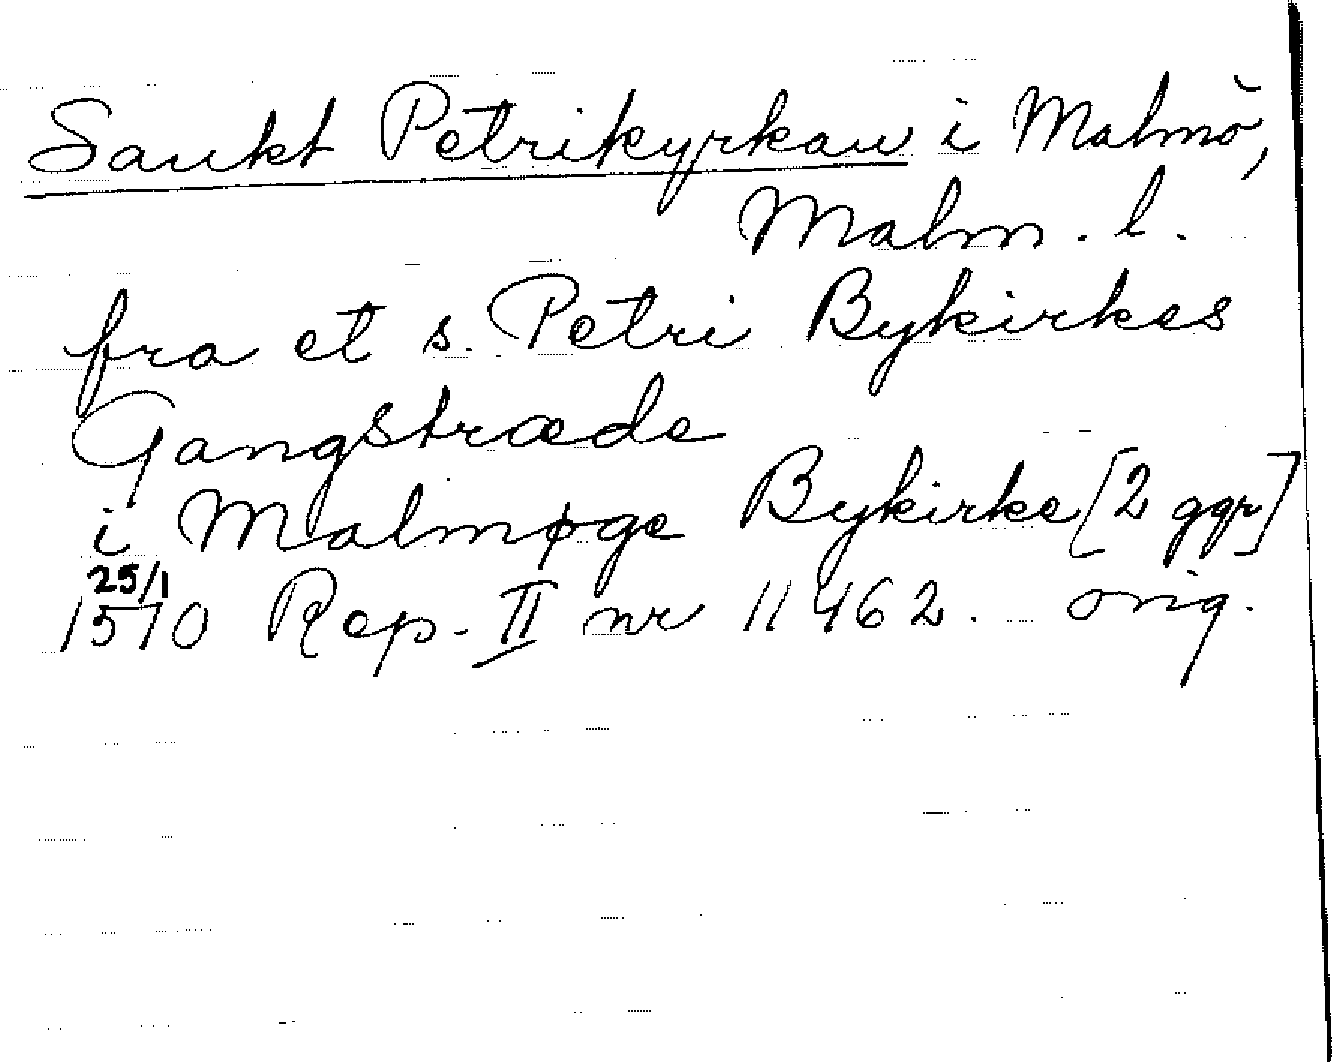 Sankt Petrikyrkan i Malmö,
Malm. l.
fra et s. Petri Bykirkes
Gangstræde
i Malmøge Bykirke [2 ggr]
25/1
1570 Rep. II nr 11462. orig.